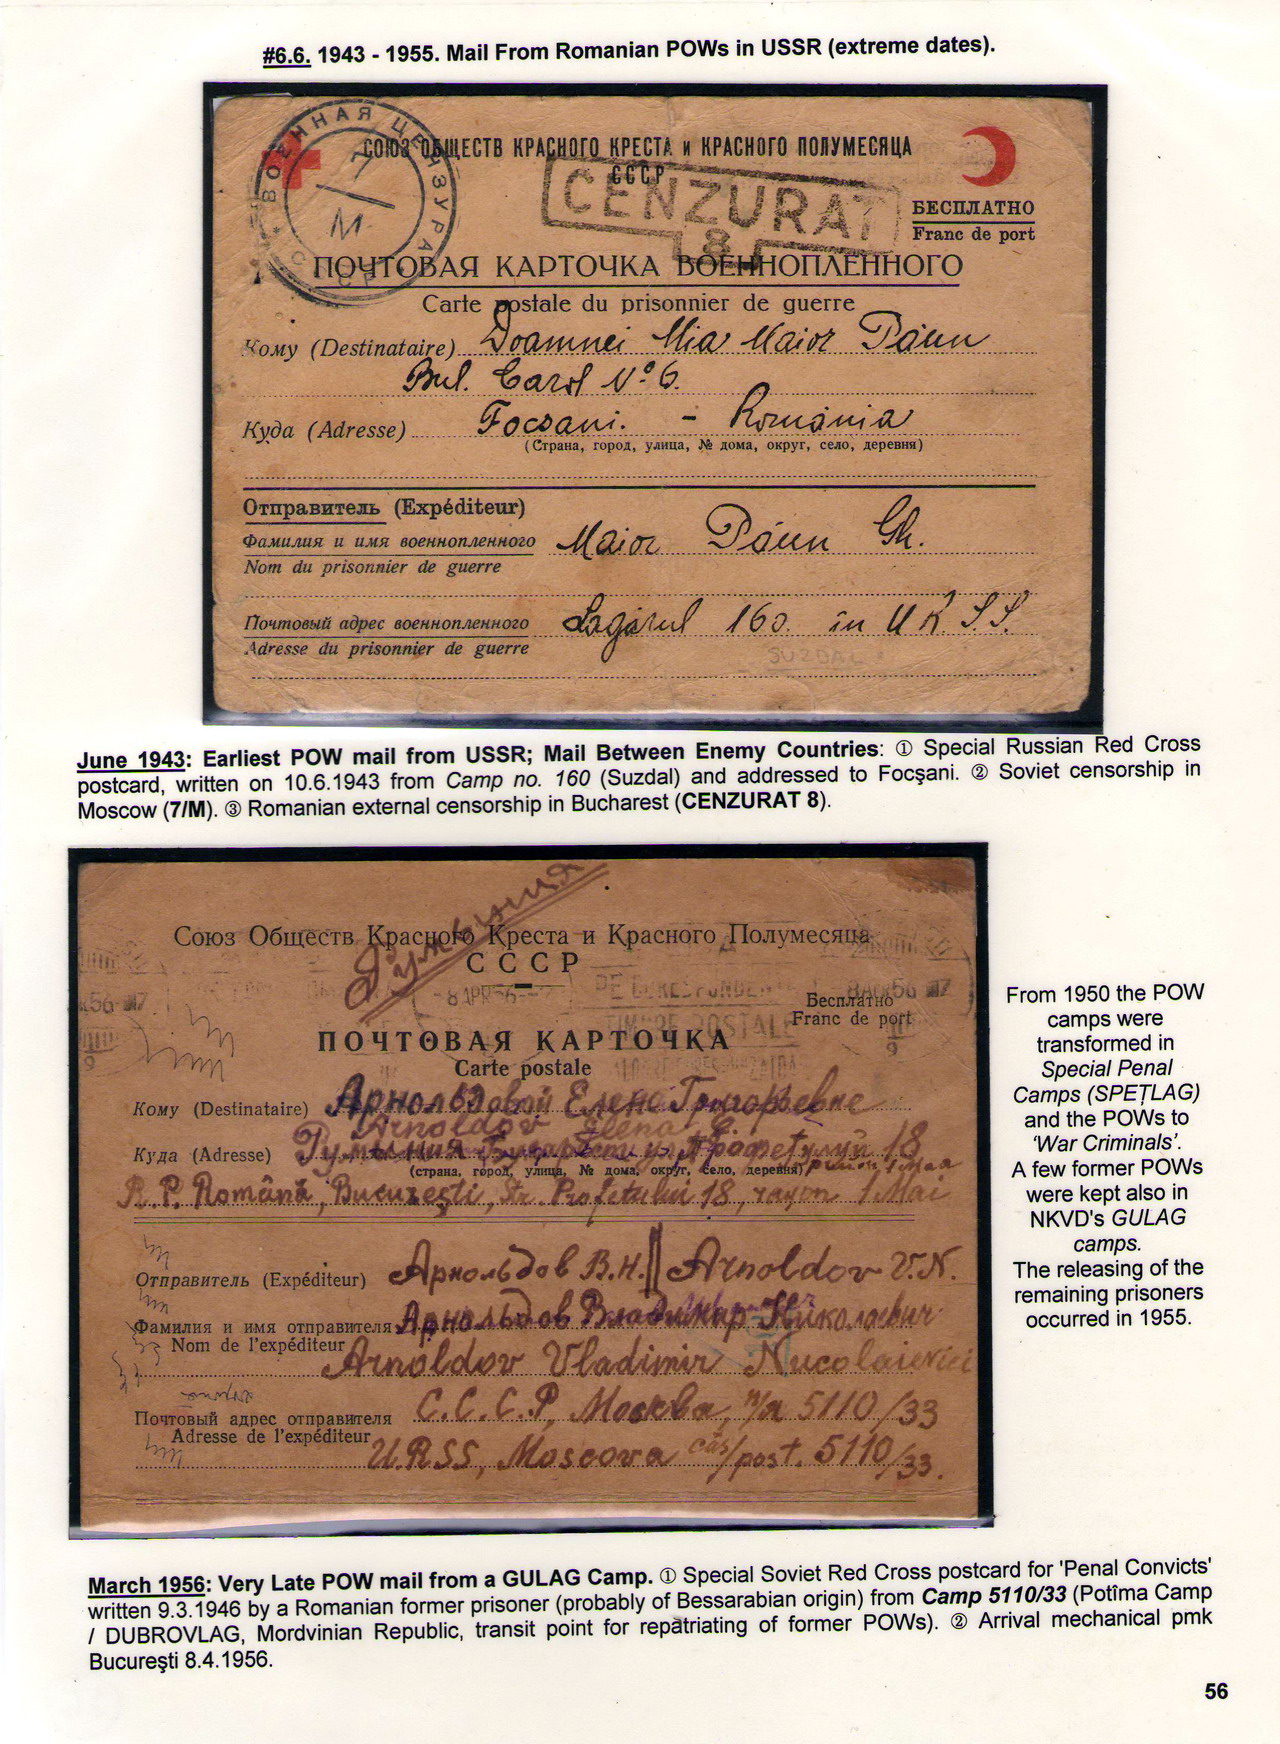 #6.6. 1943 - 1955. Mail From Romanian POWs in USSR (extreme dates).
ВОЕННАЯ ЦЕНЗУРА
7
М.
СССР
СОЮЗ ОБЩЕСТВ КРАСНОГО КРЕСТА и КРАСНОГО ПОЛУМЕСЯЦА
СССР
CENZURAT
8
БЕСПЛАТНО
Franc de port
ПОЧТОВАЯ КАРТОЧКА ВОЕННОПЛЕННОГО
Carte postale du prisonnier de guerre
Кому (Destinataire) Doamnei Mia Maior Păun
Bul. Carol No 6.
Куда (Adresse) Focsani. - România
(Страна, город, улица, № дома, округ, село, деревня)
Отправитель (Expéditeur)
Фамилия и имя военнопленного Maior Păun Gh.
Nom du prisonnier de guerre
Почтовый адрес военнопленного Lagărul 160. în U.R.S.S.
Adresse du prisonnier de guerre
SUZDAL
June 1943: Earliest POW mail from USSR; Mail Between Enemy Countries: ① Special Russian Red Cross
postcard, written on 10.6.1943 from Camp no. 160 (Suzdal) and addressed to Focşani. ② Soviet censorship in
Moscow (7/M). ③ Romanian external censorship in Bucharest (CENZURAT 8).
Румыния
Союз Обществ Красного Креста и Красного Полумесяца
СССР
-8APR56-
8APR56
Бесплатно
Franc de port
ПОЧТОВАЯ КАРТОЧКА
Carte postale
Кому (Destinataire) Арнольдовой Елене Григорьевне
Arnoldov Elena G.
Куда (Adresse) Румыния Бухарест ул. Профетулуй 18
(страна, город, улица, № дома, округ, село, деревня) район 1 Мая
R.P. Română, Bucureşti, Str. Profetului 18, rayon 1 Mai
Отправитель (Expéditeur) Арнольдов В.Н. || Arnoldov V.N.
Фамилия и имя отправителя Арнольдов Владимир Николаевич
Nom de l'expéditeur
Arnoldov Vladimir Nucolaievici
Почтовый адрес отправителя С.С.С.Р, Москва, п/я 5110/33
Adresse de l'expéditeur U.R.S.S, Moscova căs/post. 5110/33.
From 1950 the POW
camps were
transformed in
Special Penal
Camps (SPEŢLAG)
and the POWs to
'War Criminals'.
A few former POWs
were kept also in
NKVD's GULAG
camps.
The releasing of the
remaining prisoners
occurred in 1955.
March 1956: Very Late POW mail from a GULAG Camp. ① Special Soviet Red Cross postcard for 'Penal Convicts'
written 9.3.1946 by a Romanian former prisoner (probably of Bessarabian origin) from Camp 5110/33 (Potîma Camp
/ DUBROVLAG, Mordvinian Republic, transit point for repatriating of former POWs). ② Arrival mechanical pmk
Bucureşti 8.4.1956.
56